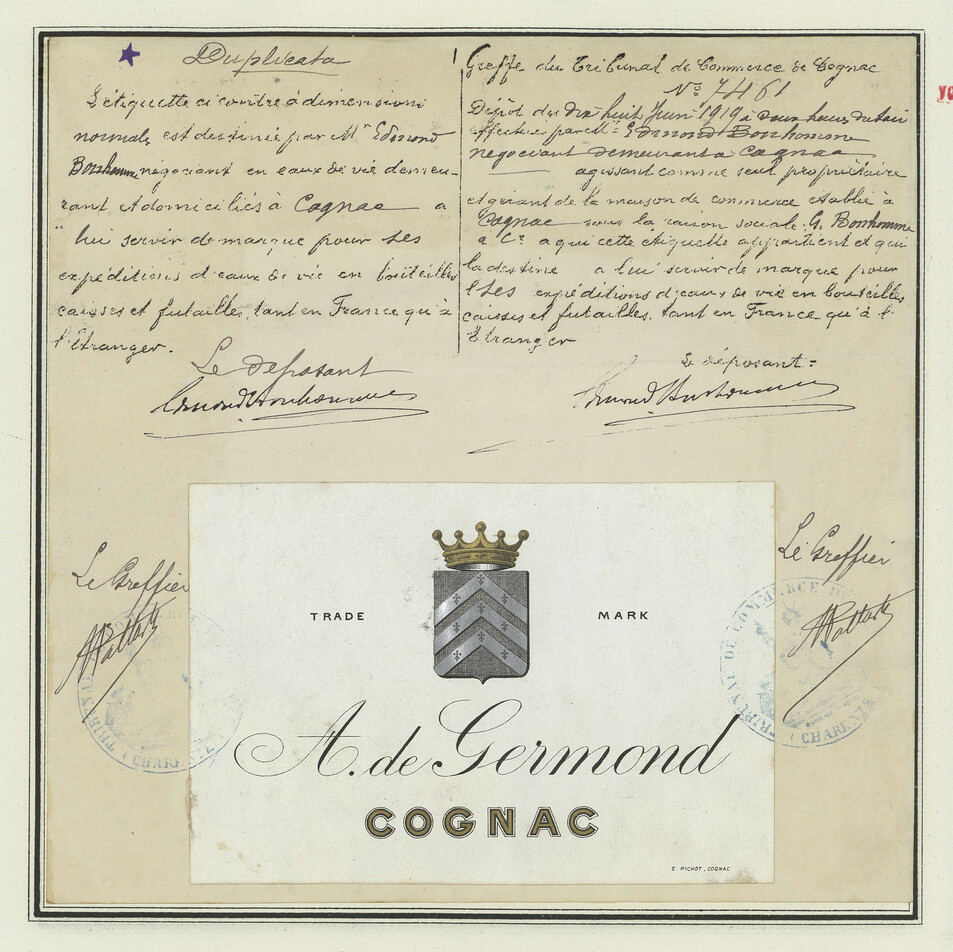 Duplicata
L'étiquette ci contre à dimensions
normales est destinée par Mr Edmond
Bonhomme négociant en eaux de vie demeu-
rant et domiciliés à Cognac a
lui servir de marque pour ses
expéditions d'eaux de vie en bouteilles
caisses et futailles, tant en France qu'à
l'étranger.
Le déposant
Edmond Bonhomme
Greffe du Tribunal de Commerce de Cognac
Nos 7461
Dépôt du dix huit Juin 1919 à heures du soir
effectué par Mr Edmond Bonhomme
négociant demeurant à Cognac
agissant comme seul propriétaire
et gérant de la maison de commerce établie à
Cognac sous la raison sociale. G. Bonhomme
& Cie a qui cette étiquette appartient et qui
la destine a lui servir de marque pour
ses expéditions d'eaux de vie en bouteilles,
caisses et futailles, tant en France qu'à l'
Etranger
Le déposant =
Edmond Bonhomme
Le Greffier
TRIBUNAL DE COMMERCE
(CHARENTE)
TRADE MARK
A. de Germond
COGNAC
E. PICHOT, COGNAC
Le Greffier
TRIBUNAL DE COMMERCE DE
(CHARENTE)